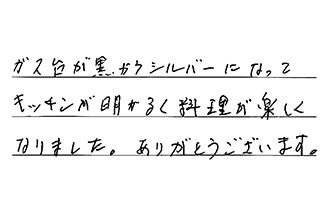 ガス台が黒からシルバーになって
キッチンが明かるく料理が楽しく
なりました。ありがとうございます。